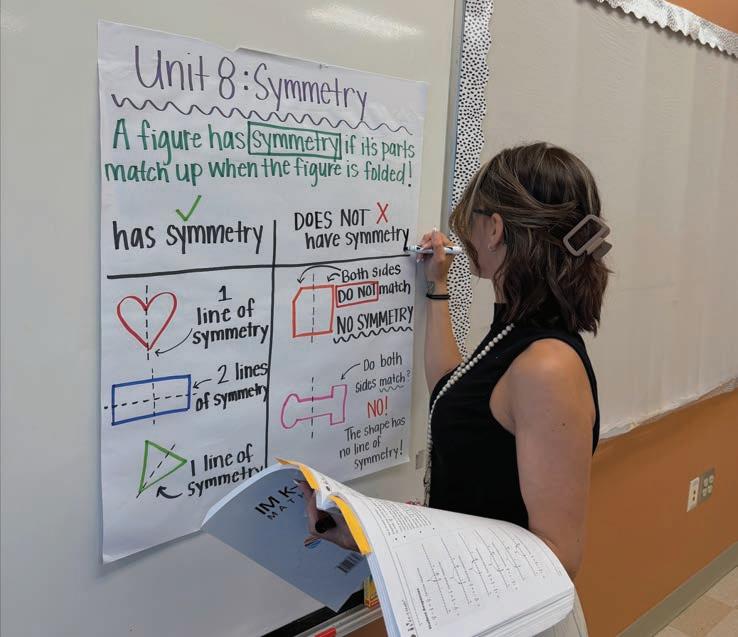 Unit 8: Symmetry
A figure has symmetry if its parts
match up when the figure is folded!
has symmetry
DOES NOT
have symmetry
1
line of
symmetry
2 lines
of symmetry
1 line of
symmetry
Both sides
DO NOT match
NO SYMMETRY
Do both
sides match?
NO!
The shape has
no line of
symmetry!
IM K
MAT